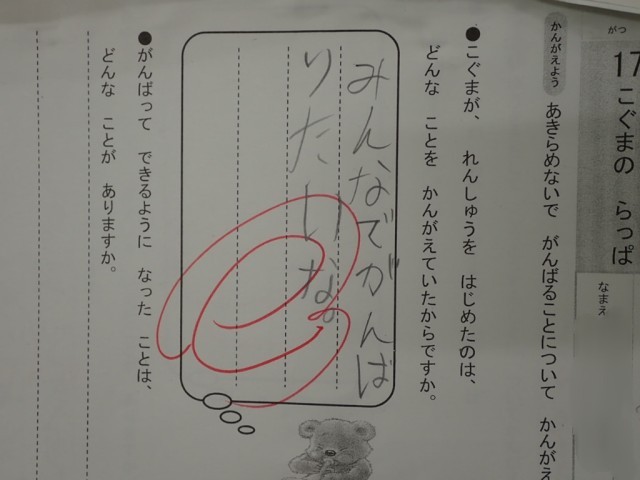 がつ
17
こぐまの らっぱ
なまえ
かんがえよう
あきらめないで がんばることについて かんがえ
●こぐまが、れんしゅうを はじめたのは、
どんな ことを かんがえていたからですか。
みんなでがんば
りたいな。
●がんばって できるように なった ことは、
どんな ことが ありますか。